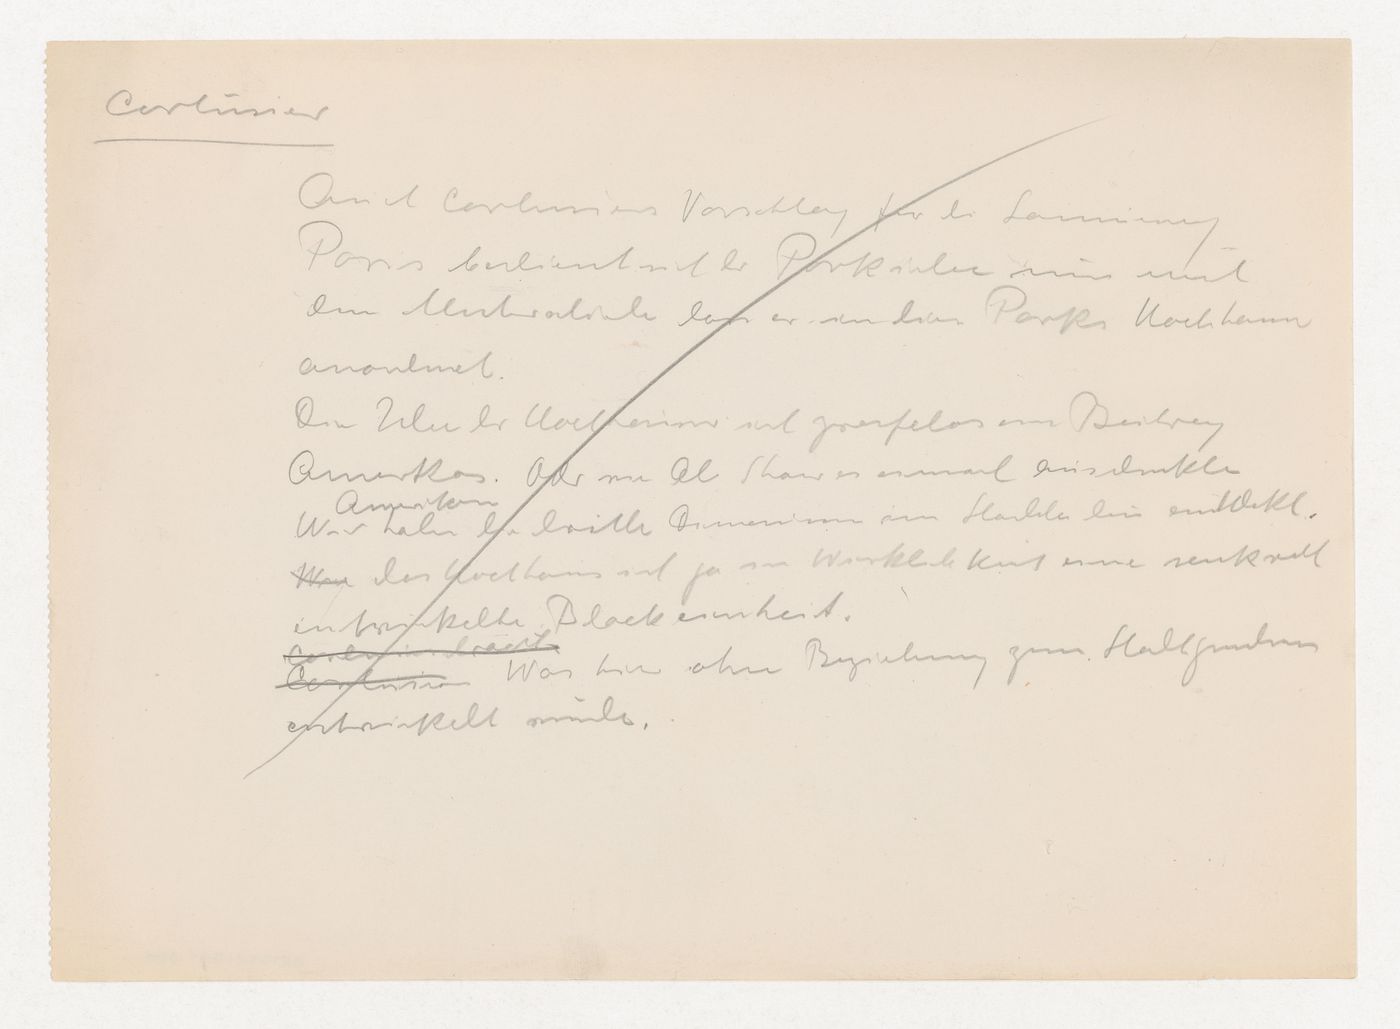 Corbusier
Auch Corbusiers Vorschlag für die Sanierung
Paris bedient sich der Parkidee nur mit
dem Unterschiede dass er in diesen Parks Hochhäuser
anordnet.
Die Idee der Hochhäuser ist zweifelos ein Beitrag
Amerikas. Oder wie Al Shaw es einmal ausdrückte
Amerikaner
Wir haben die dritte Dimension im Städtebau entdekt.
Wir das Hochhaus ist ja in Wirklichkeit eine senkrecht
entwickelte Blockeinheit.
Corbusier
Corbusier Was hier ohne Beziehung zum Stadtganzen
entwickelt wurde.